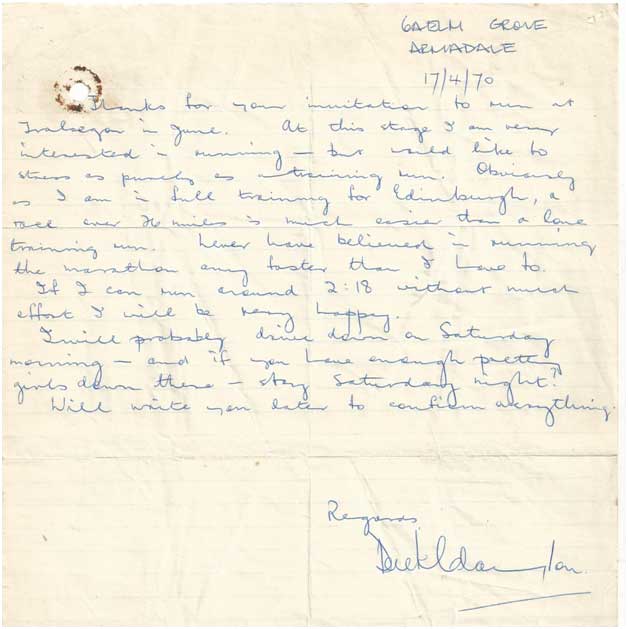 6A ELM GROVE
ARMADALE
17/4/70
Thanks for your invitation to run at
Traralgon in June. At this stage I am very
interested in running – but would like to
stress as purely as a training run. Obviously
as I am in full training for Edinburgh, a
race over 26 miles is much easier than a lone
training run. Never have believed in running
the marathon any faster than I have to.
If I can run around 2:18 without much
effort I will be very happy.
I will probably drive down on Saturday
morning – and if you have enough pretty
girls down there – stay Saturday night?
Will write you later to confirm everything.
Regards,
Derek Clayton.